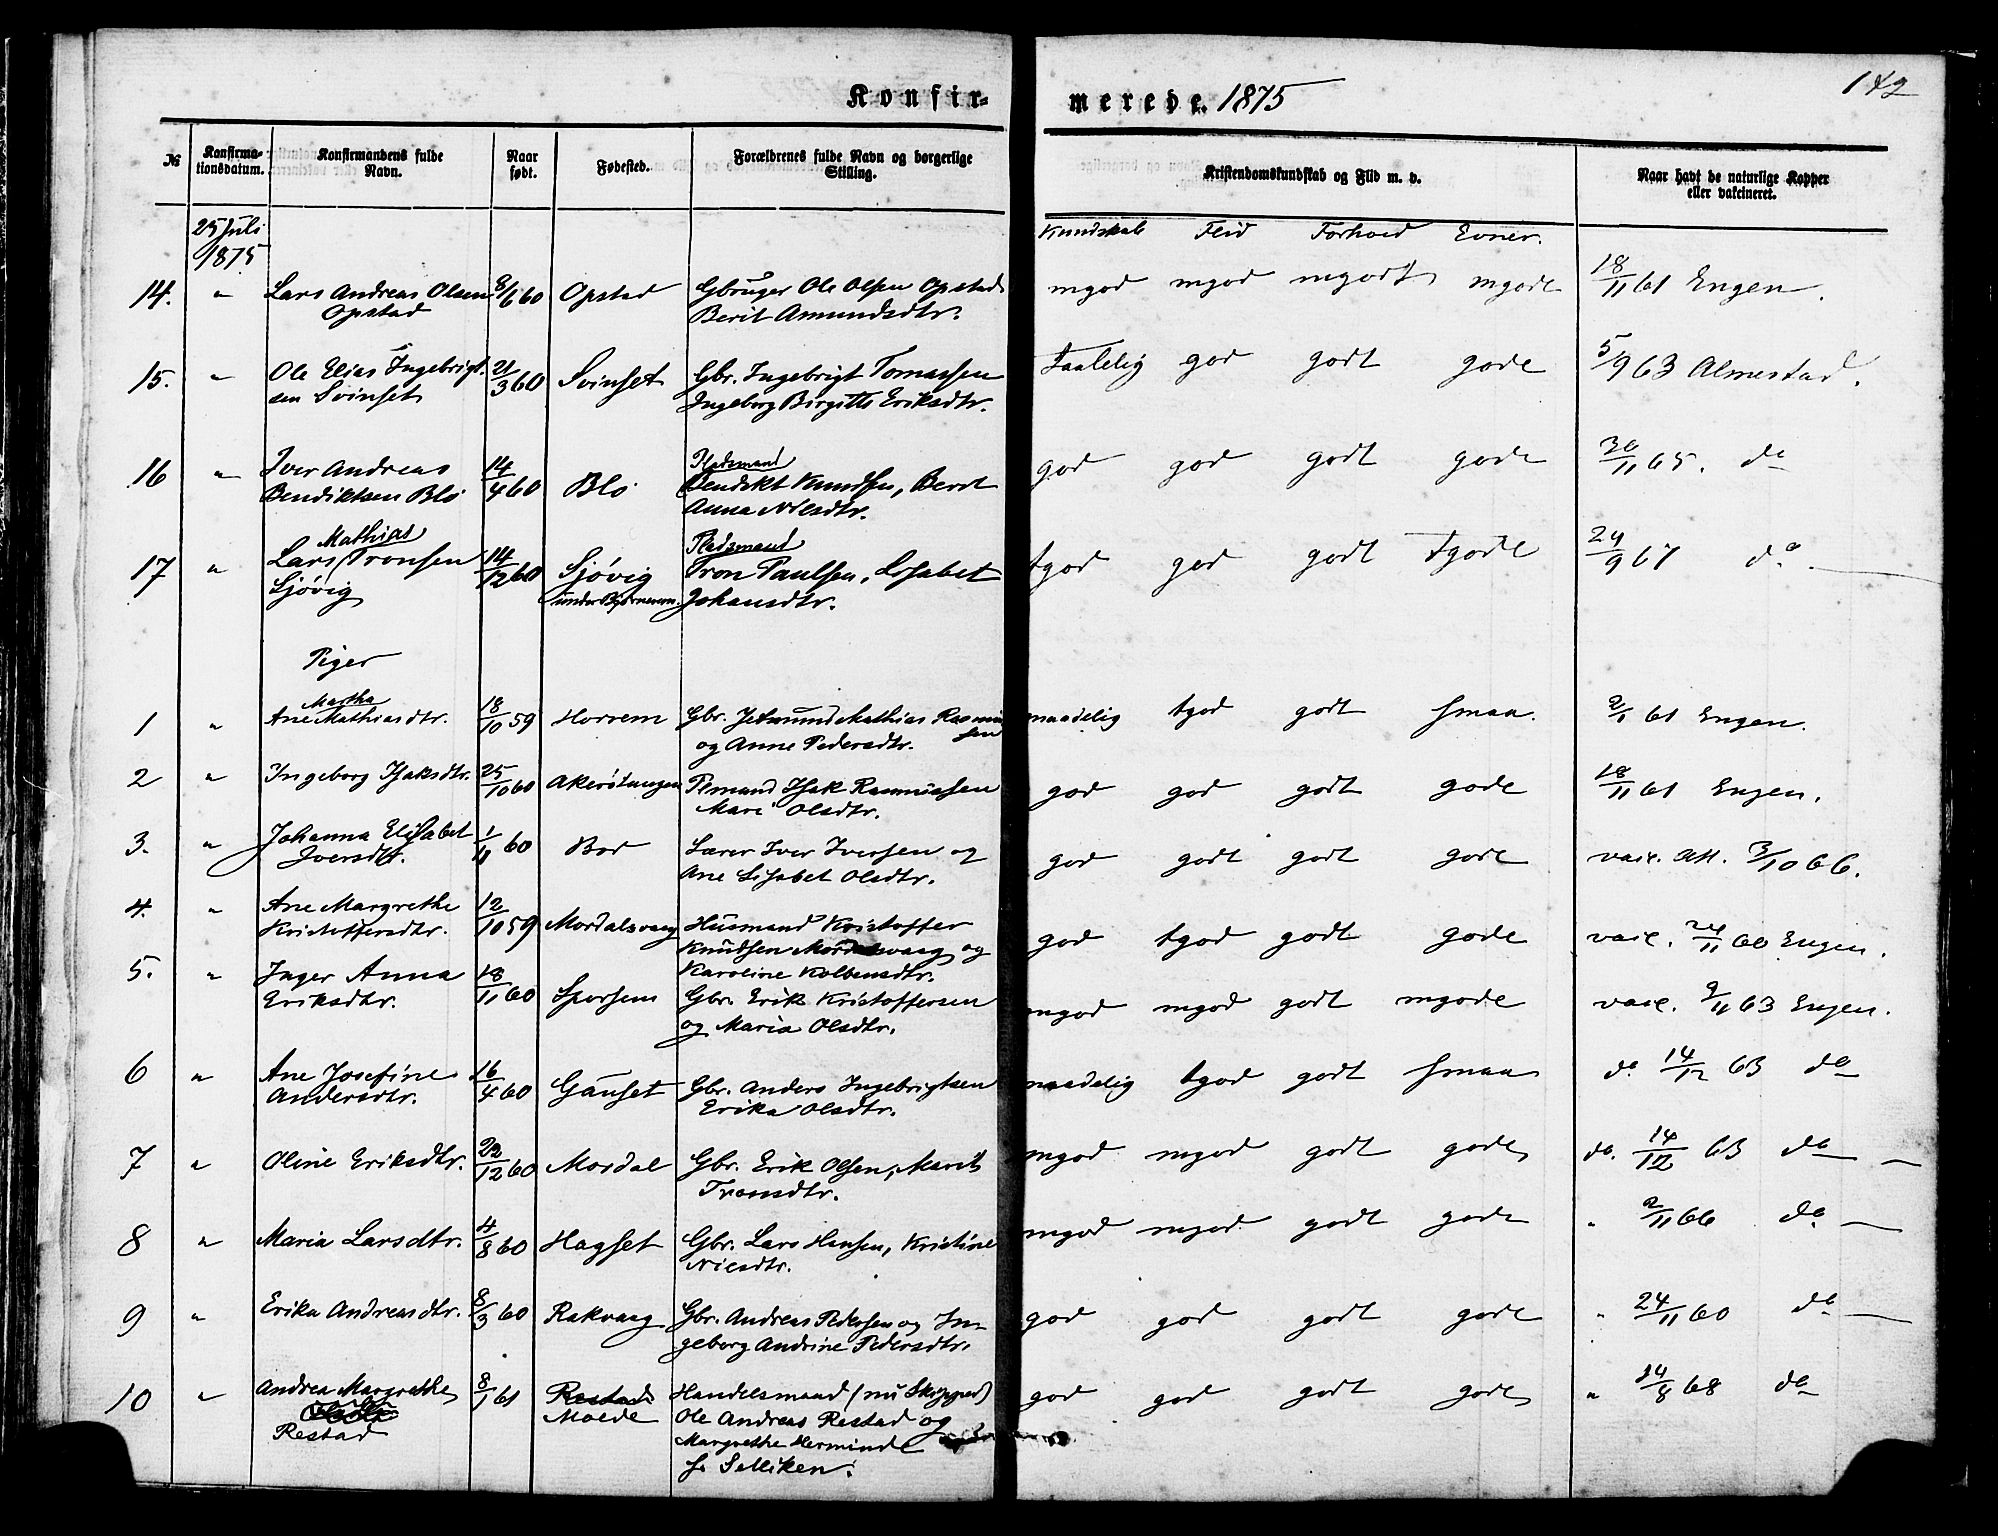 Konfir-
merede. 1875
142
№
Konfirma-
tionsdatum.
Konfirmandens fulde
Navn.
Naar
født.
Fødested.
Forældrenes fulde Navn og borgerlige
Stilling.
Kristendomskundskab og Flid m. v.
Naar havt de naturlige Kopper
eller vakcineret.
25 Juli
1875
Kundskab Flid Forhold Evner.
14. " Lars Andreas Olsen 8/6 60 Opstad Gbruger Ole Olsen Opstad mgod mgod mgodt mgode 18/11 61 Engen.
Opstad Berit Amundsdtr.
15. " Ole Elias Ingebrigt- 21/3 60 Svinset Gbr. Ingebrigt Tomassen taalelig god godt gode 5/9 63 Almestad.
sen Svinset Ingeborg Birgitte Eriksdtr.
Pladsmand
16 " Iver Andreas 14/4 60 Blø Bendikt Knudsen, Berit god god godt gode 30/11 65. do
Bendiktsen Blø Anna Nilsdtr.
Mathias Pladsmand
17 " Lars Tronsen 14/12 60 Sjøvig Tron Paulsen, Lisabet tgod god godt tgode 24/9 67 do
Sjøvig under Bjørnerem. Johansdtr.
Piger
Martha
1 " Ane Mathiasdtr. 18/10 59 Horrem Gbr. Jetmund Mathias Rasmus maadelig tgod godt smaa. 2/1 61 Engen.
sen
og Anne Pedersdtr.
2 " Ingeborg Isaksdtr. 25/10 60 Akerøtangen Pmand Isak Rasmussen god god godt gode 18/11 61 Engen.
Mari Olsdtr.
3. " Johanna Elisabet 1/11 60 Bod Lærer Iver Iversen og god godt godt gode vacc. att. 3/10 66.
Iversdtr. Ane Lisabet Olsdtr.
4. " Ane Margrethe 12/10 59 Mordalsvaag Husmand Kristoffer god tgod godt gode vacc. 24/11 60 Engen.
Kristoffersdtr. Knudsen Mordalsvaag og
Karoline Kolbensdtr.
5. " Inger Anna 18/11 60 Sporsem Gbr. Erik Kristoffersen mgod mgod godt mgode vacc. 9/11 63 Engen.
Eriksdtr. og Maria Olsdtr.
6 " Ane Josefine 16/4 60 Gauset Gbr. Anders Ingebrigtsen maadelig tgod godt smaa do 14/12 63 do
Andersdtr. Erika Olsdtr.
7 " Oline Eriksdtr. 22/12 60 Mordal Gbr. Erik Olsen, Marit mgod mgod godt gode do. 14/12 63 do
Tronsdtr.
8 " Maria Larsdtr. 4/8 60 Hagset Gbr. Lars Hansen, Kristine mgod mgod godt gode " 2/11 66 do
Nilsdtr.
9 " Erika Andreasdtr. 8/3 60 Rakvaag Gbr. Andreas Pedersen og In- god god godt gode " 24/11 60 do
geborg Andrine Pedersdtr.
10 " Andrea Margrethe 8/1 61 Restad Handelsmand (nu Skipper) god god godt gode " 24/8 68 do
Restad Molde Ole Andreas Restad og
Margrethe Hermine
f. Selliken.